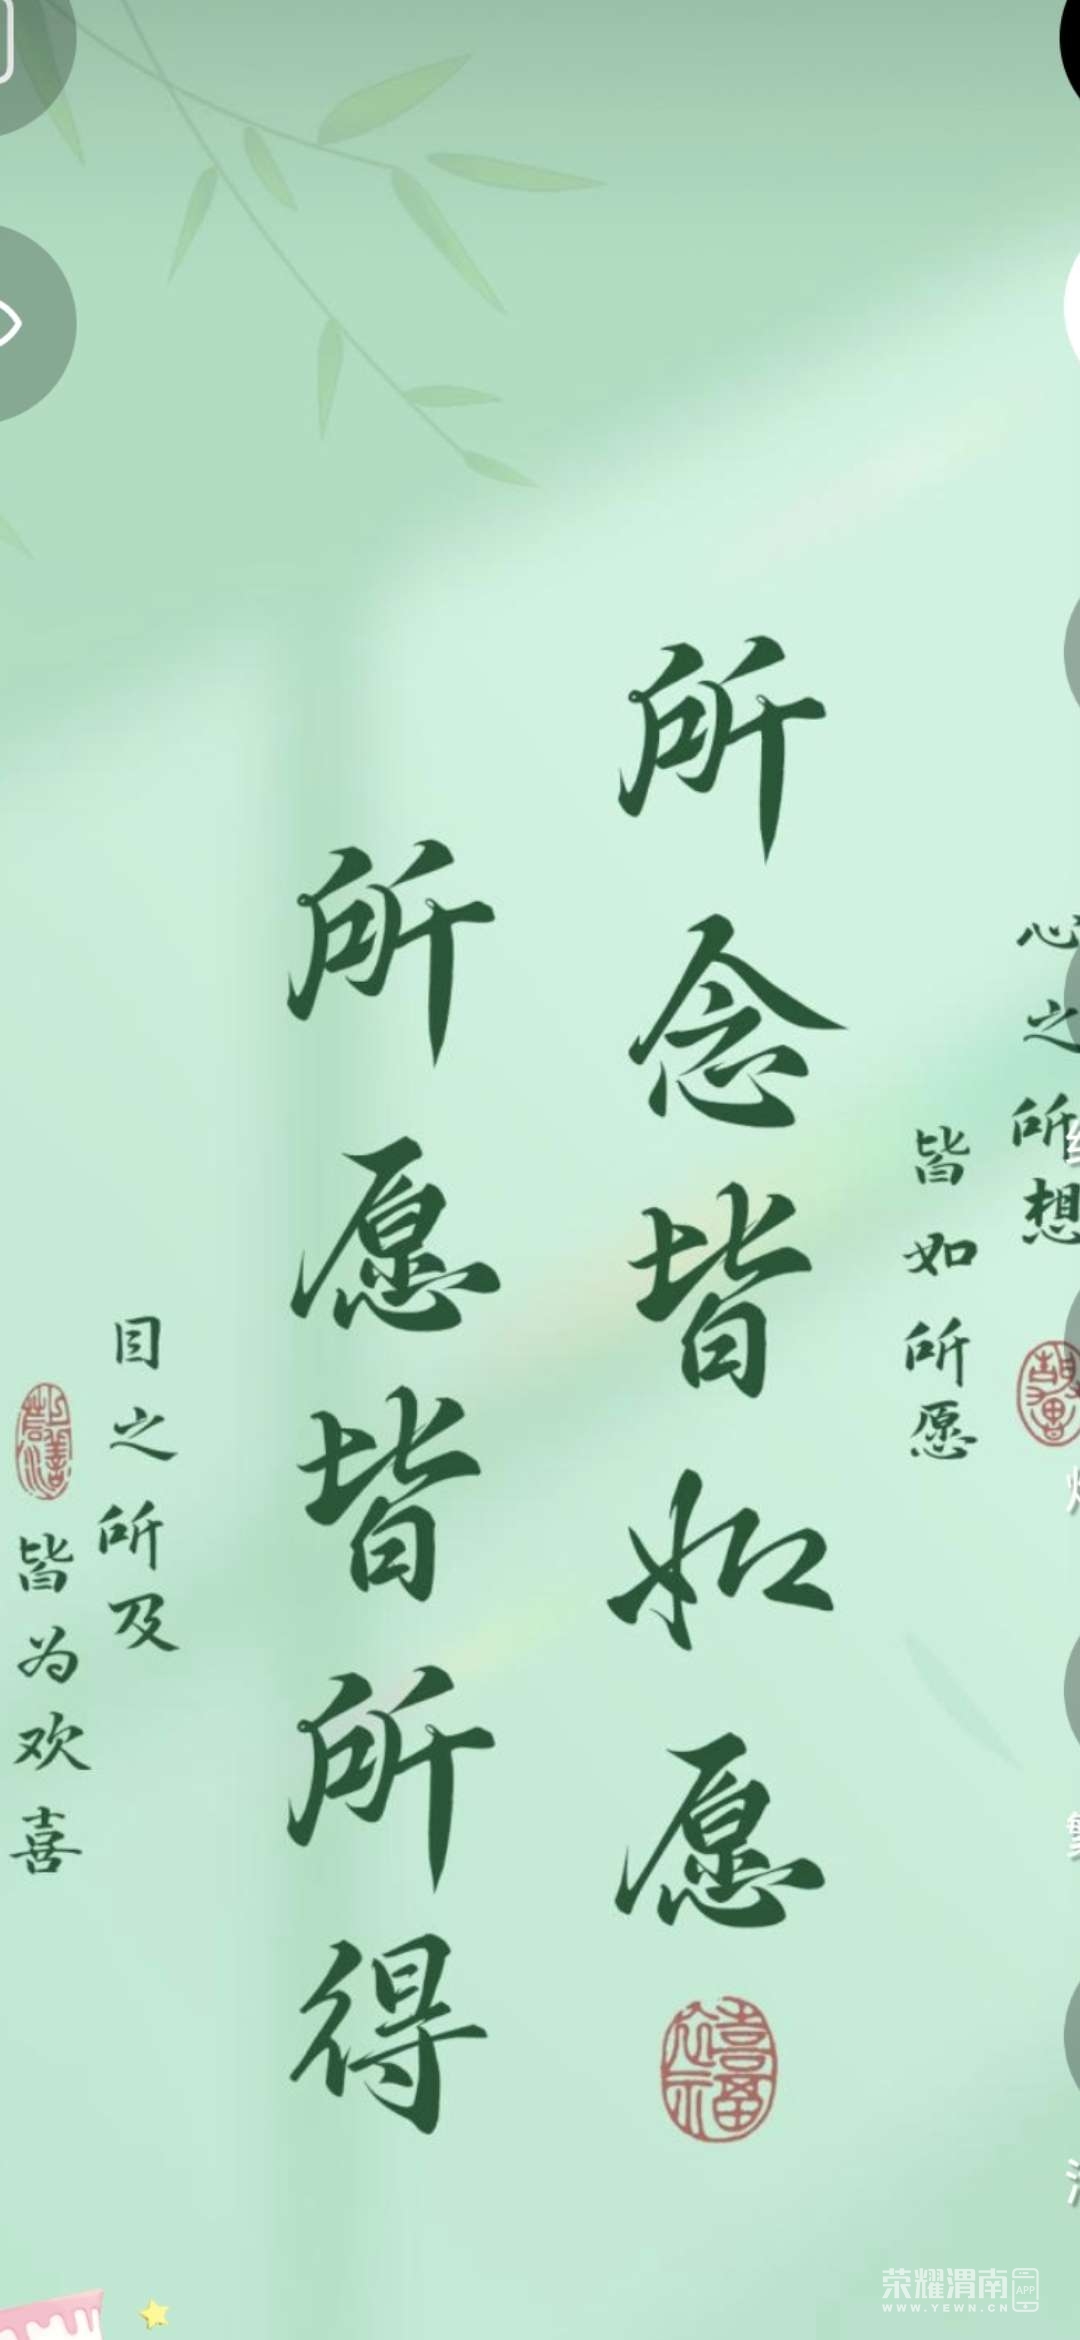 心之所想
皆如所愿
所念皆如愿
所愿皆所得
目之所及
皆为欢喜
荣耀渭南
APP
WWW.YEWN.CN